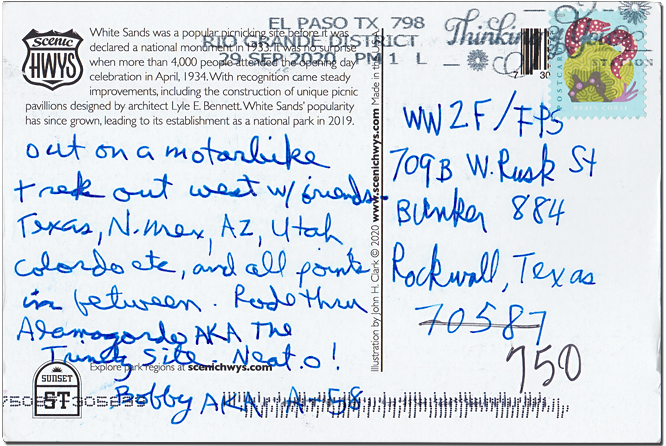 EL PASO TX 798
RIO GRANDE DISTRICT
29 SEP 2020 PM 1 L
Thinking of You
STATION
POSTCARD
Scenic
HWYS
White Sands was a popular picnicking site before it was
declared a national monument in 1933. It was no surprise
when more than 4,000 people attended the opening day
celebration in April, 1934. With recognition came steady
improvements, including the construction of unique picnic
pavillions designed by architect Lyle E. Bennett. White Sands' popularity
has since grown, leading to its establishment as a national park in 2019.
out on a motorbike
trek out west w/ friends-
Texas, N. mex, AZ, Utah,
colordo etc, and all points
in between. Rode thru
Alamogordo AKA The
Trinity Site. Neat.o!
Bobby AKA A-58
Explore park regions at scenichwys.com
SUNSET
ST
Illustration by John H. Clark © 2020 www.scenichwys.com Made in the USA
7
30
WW2F/FPS
709B W. Rusk St
Bunker 884
Rockwall, Texas
70587
750